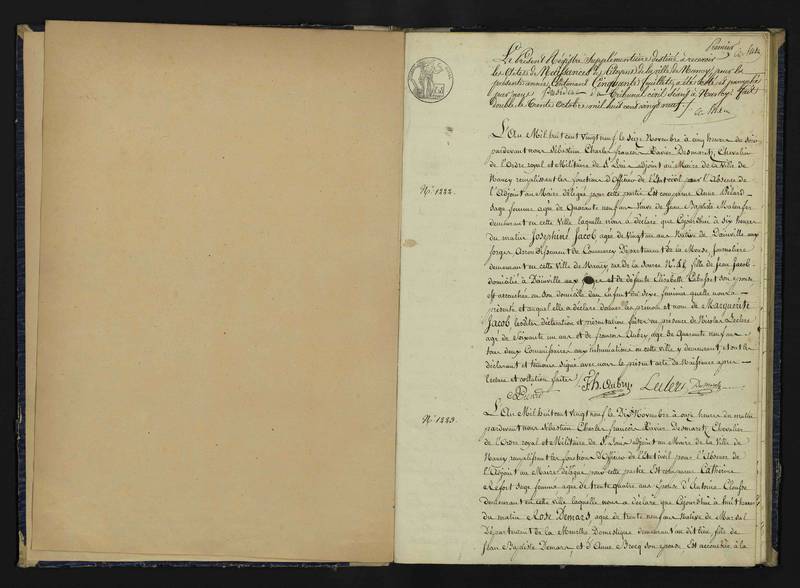 Premier
Le Présent Régistre Supplémentaire destiné à recevoir
les Actes de Naissances des Citoyens de la ville de Nancy, pour la
présente année, Contenant Cinquante feuillets, a été coté et paraphé
par nous Président du tribunal civil séant à Nancy, fait
double le trente Octobre mil huit cent vingt neuf
L'An Mil huit cent vingt neuf le Seize Novembre à cinq heures du soir
pardevant nous Sébastien Charles françois Xavier Desmarets, Chevalier
de l'Ordre royal et Militaire de St Louis adjoint au Maire de la Ville de
Nancy remplissant les fonctions d'Officier de l'Etat civil pour l'Absence de
N°. 1222.
l'Adjoint au Maire délégué pour cette partie Est comparue Anne
Sage femme agée de Quarante neuf ans Veuve de Jean Baptiste
demeurant en cette Ville laquelle nous a déclaré que Cejourdhui à six heures
du matin Joséphine Jacob agée de vingt un ans Native de Dainville aux
forges Arrondissement de Commercy Département de la Meuse, journalière
demeurant en cette Ville de Nancy, rue de la Source N°. fille de Jean Jacob
domicilié à Dainville aux et de défunte Elisabeth son épouse
est accouchée en son domicile d'un Enfant du sexe féminin quelle nous a
présenté et auquel elle a déclaré donner les prénom et nom de Marguerite
Jacob lesdites déclaration et présentation faites en présence de Nicolas Leclerc
agé de Soixante un ans et de francois Aubry agé de Quarante neuf ans
tous deux Commissaires aux inhumations en cette ville y demeurant et ont les
déclarant et témoins signé avec nous le présent acte de Naissance après
lecture et collation faites
Fh. Aubry Leclerc Desmarets
N°. 1223.
L'An Mil huit cent vingt neuf le Novembre à onze heures du matin
pardevant nous Sébastien Charles francois Xavier Desmarets Chevalier
de l'Ordre royal et Militaire de St Louis adjoint au Maire de la Ville de
Nancy remplissant les fonctions d'Officier de l'Etat civil pour l'Absence de
l'Adjoint au Maire délégué pour cette partie Est comparue Catherine
Lefort Sage femme agée de trente quatre ans Epouse d'Antoine
demeurant en cette ville laquelle nous a déclaré que Cejourdhui à huit heures
du matin Rose Demars agée de trente neuf ans native de Marsal
Département de la Meurthe Domestique demeurant au dit lieu, fille de
Jean Baptiste Demars et d'Anne Becq son épouse Est accouchée à la